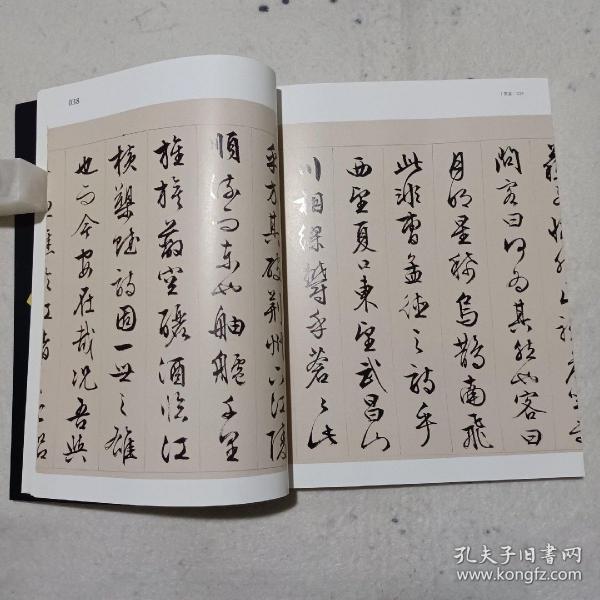 038
問客曰何為其然也客曰
月明星稀烏鵲南飛
此非曹孟德之詩乎
西望夏口東望武昌山
川相繆鬱乎蒼蒼此
乎方其破荊州下江陵
順流而東也舳艫千里
旌旗蔽空釃酒臨江
橫槊賦詩固一世之雄
也而今安在哉況吾與
樵於江渚
孔夫子旧书网
www.kongfz.com